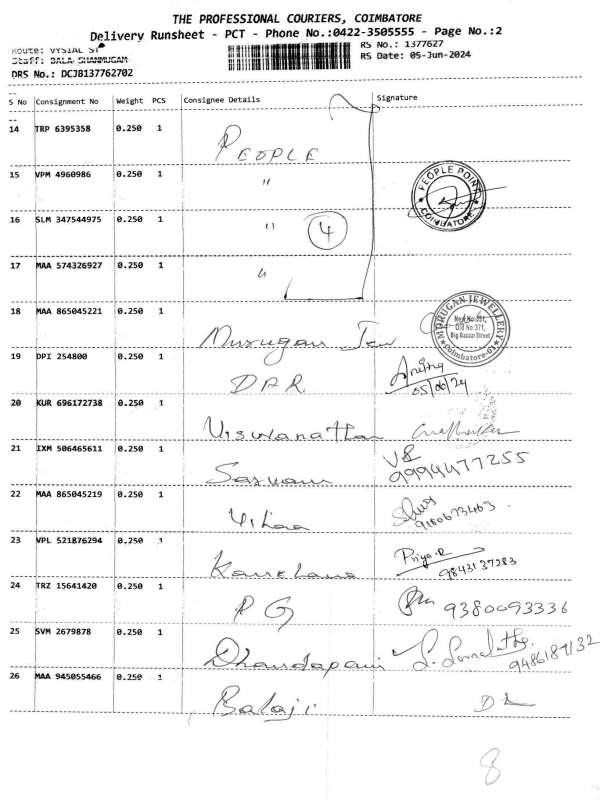 THE PROFESSIONAL COURIERS, COIMBATORE
Delivery Runsheet - PCT - Phone No.:0422-3505555 - Page No.:2
Route: VYSIAL ST RS No.: 1377627
Staff: BALA SHANMUGAM RS Date: 05-Jun-2024
DRS No.: DCJB137762702
S No Consignment No Weight PCS Consignee Details Signature
14 TRP 6395358 0.250 1 PEOPLE
15 VPM 4960986 0.250 1 " PEOPLE POINT COIMBATORE
16 SLM 347544975 0.250 1 " 4
17 MAA 574326927 0.250 1 "
18 MAA 865045221 0.250 1 Murugan Jew MURUGAN JEWELLERY New No:331, Old No:371, Big Bazaar Street, Coimbatore-01
19 DPI 254800 0.250 1 DAR 05/06/24
20 KUR 696172738 0.250 1 Viswanathan
21 IXM 506465611 0.250 1 Sarvam VR 9994477255
22 MAA 865045219 0.250 1 9180673463
23 VPL 521876294 0.250 1 Priya.R 9843137283
24 TRZ 15641420 0.250 1 PG 9380093336
25 SVM 2679878 0.250 1 Dhandapani 9486187132
26 MAA 945055466 0.250 1 Balaji
8